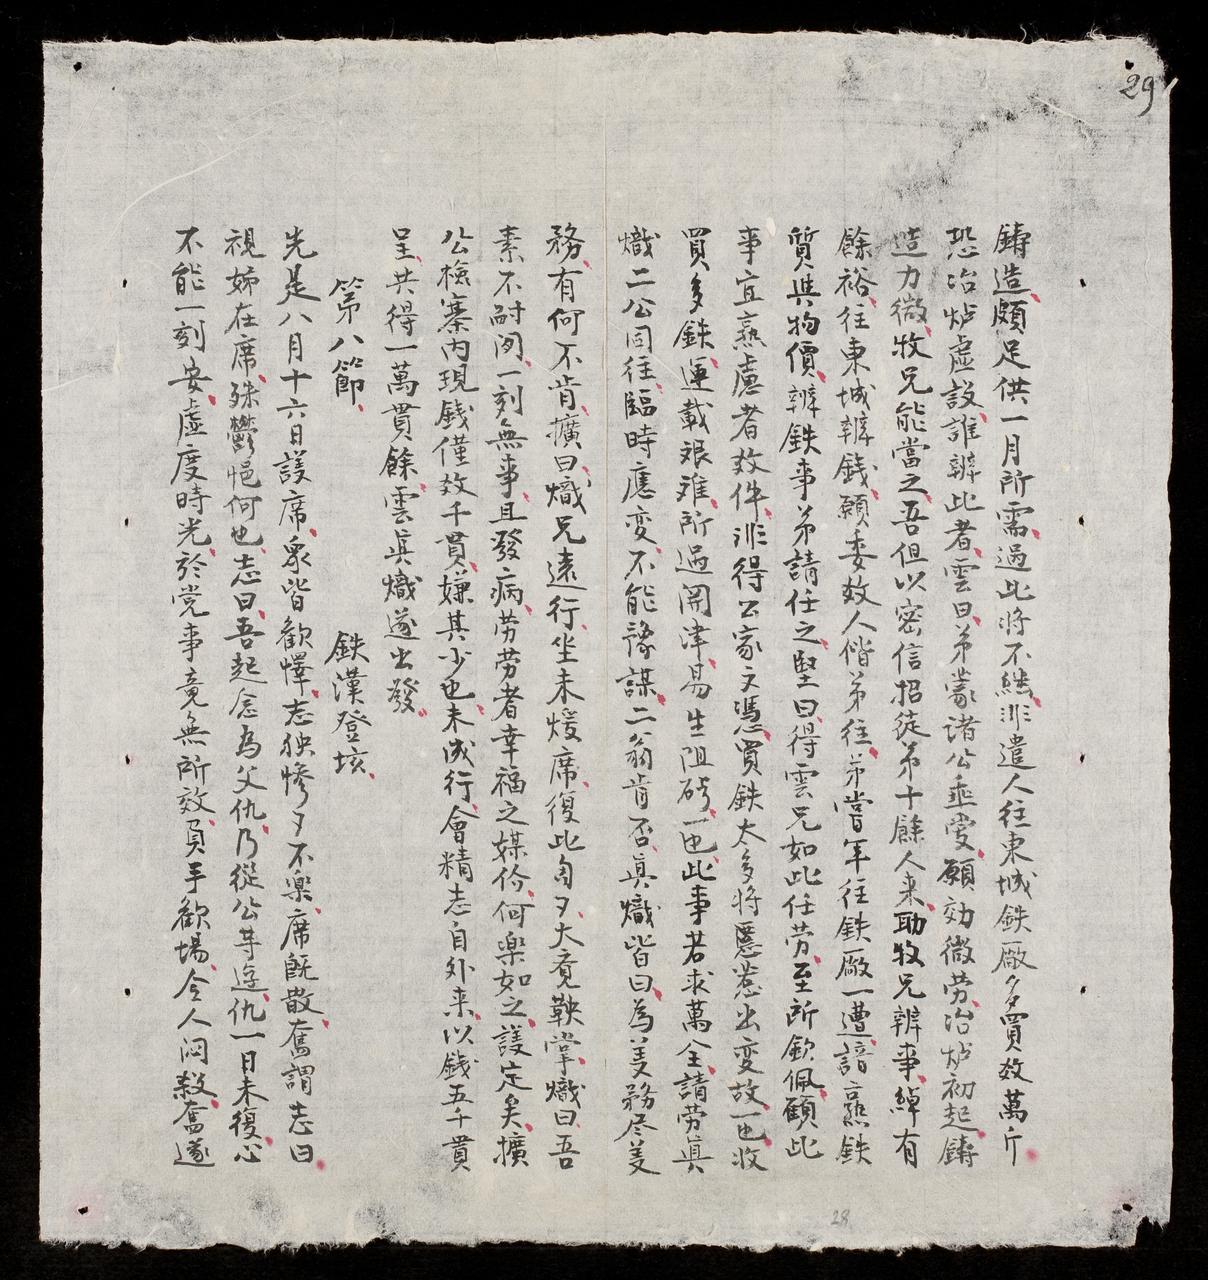 29
鋳造、頗足供一月所需、過此将不継、非遣人往東城鉄廠多買效萬斤
恐冶炉虚設、誰辨此者、雲曰、弟蒙诸公垂愛、願効微劳、冶炉初起、鋳
造力微、牧兄能當之、吾但以密信招徒弟十餘人来、助牧兄辨事、綽有
餘裕、往東城辨鉄、願委效人偕弟往、弟嘗年往鉄廠一遭、諳熟鉄
質與物價、辨鉄事弟請任之、堅曰、得雲兄如此任劳、至所欽佩、顧此
事宜熟慮者效件、非得公家文馮、買鉄太多将惹出変故、一也、收
買多鉄、運載艰难、所過関津、易生阻碍、一也、此事若求萬全、請劳眞
熾二公同往、臨時應变、不能豫謀、二翁肯否、眞熾皆曰、為義務尽義
務、有何不肯、擴曰、熾兄遠行、坐未煖席、復此匆匆、大竟鞅掌、熾曰、吾
素不耐閒、一刻無事、且發病、劳劳者幸福之媒价、何楽如之、議定矣、擴
公檢寨内現錢僅效千貫、嫌其少也、未成行、會精志自外来、以錢五千貫
呈、共得一萬貫餘、雲眞熾遂出發、
第八節、　鉄漢登垓、
先是八月十六日議席、衆皆歡懌、志独惨夕不楽、席既散、奮謂志曰、
視姊在席、殊鬱悒何也、志曰、吾起念為父仇、乃從公等逰、仇一日未復、心
不能一刻安、虚度時光、於党事竟無所效、負手歡場、令人闷殺、奮遂
28